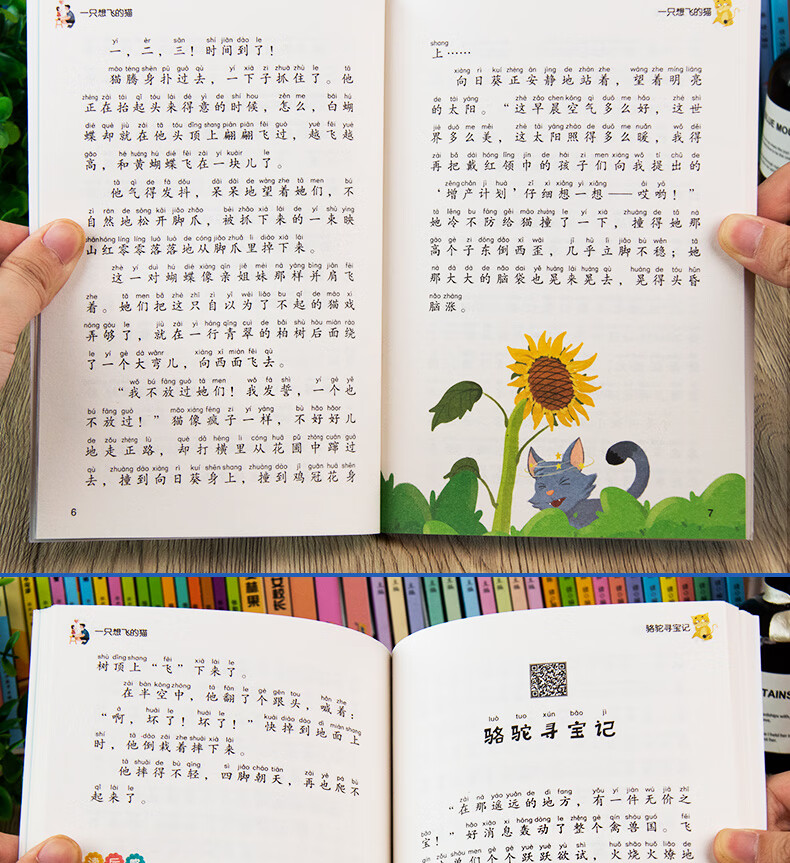 一只想飞的猫
yī èr sān shí jiān dào le
一，二，三！时间到了！
māo téng shēn pū guò qù yí xià zi zhuā zhù le tā
猫腾身扑过去，一下子抓住了。他
zhèng zài tái qǐ tóu lái dé yì de shí hou zěn me bái hú
正在抬起头来得意的时候，怎么，白蝴
dié què jiù zài tā tóu dǐng shang piān piān fēi guò yuè fēi yuè
蝶却就在他头顶上翩翩飞过，越飞越
gāo hé huáng hú dié fēi zài yí kuàir le
高，和黄蝴蝶飞在一块儿了。
tā qì de fā dǒu dāi dāi de wàng zhe tā men bú
他气得发抖，呆呆地望着她们，不
zì rán de sōng kāi jiǎo zhǎo bèi zhuā xià lái de yí shù yìng
自然地松开脚爪，被抓下来的一束映
shān hóng líng líng luò luò de cóng jiǎo zhuǎ li diào xià lái
山红零零落落地从脚爪里掉下来。
zhè yí duì hú dié xiàng qīn jiě mèi nà yàng bìng jiān fēi
这一对蝴蝶像亲姐妹那样并肩飞
zhe tā men bǎ zhè zhī zì yǐ wéi liǎo bu qǐ de māo xì
着。她们把这只自以为了不起的猫戏
nòng gòu le jiù zài yì háng qīng cuì de bǎi shù hòu miàn rào
弄够了，就在一行青翠的柏树后面绕
le yí gè dà wānr xiàng xī miàn fēi qù
了一个大弯儿，向西面飞去。
wǒ bú fàng guò tā men wǒ fā shì yí gè yě
“我不放过她们！我发誓，一个也
bú fàng guò māo xiàng fēng zi yí yàng bù hǎo hāor
不放过！”猫像疯子一样，不好好儿
de zǒu zhèng lù què dǎ héng lǐ cóng huā pǔ zhōng cuān guò
地走正路，却打横里从花圃中蹿过
qù zhuàng dào xiàng rì kuí shēn shang zhuàng dào jī guān huā shēn
去，撞到向日葵身上，撞到鸡冠花身
6
一只想飞的猫
shang
上……
xiàng rì kuí zhèng ān jìng de zhàn zhe wàng zhe míng liàng
向日葵正安静地站着，望着明亮
de tài yáng zhè zǎo chen kōng qì duō me hǎo zhè shì
的太阳。“这早晨空气多么好，这世
jiè duō me měi zhè tài yáng zhào de duō me nuǎn wǒ děi
界多么美，这太阳照得多么暖，我得
zài bǎ dài hóng lǐng jīn de hái zi men xiàng wǒ tí chū de
再把戴红领巾的孩子们向我提出的
zēng chǎn jì huà zǐ xì xiǎng yì xiǎng āi yō
‘增产计划’仔细想一想——哎哟！”
tā lěng bù fáng gěi māo zhuàng le yí xià zhuàng de tā nà
她冷不防给猫撞了一下，撞得她那
gāo gè zi dōng dǎo xī wāi jī hū lì jiǎo bù wěn tā
高个子东倒西歪，几乎立脚不稳；她
nà dà dà de nǎo dai yě huàng lái huàng qù huàng de tóu hūn
那大大的脑袋也晃来晃去，晃得头昏
nǎo zhàng
脑涨。
7
一只想飞的猫
shù dǐng shang fēi xià lái le
树顶上“飞”下来了。
zài bàn kōng zhōng tā fān le gè gēn tou hǎn zhe
在半空中，他翻了个跟头，喊着：
ā huài le huài le kuài diào dào dì miàn shang
“啊，坏了！坏了！”快掉到地面上
shí tā dào zāi zhe shuāi xià lái
时，他倒栽着摔下来。
tā shuāi de bù qīng sì jiǎo cháo tiān zài yě pá bù
他摔得不轻，四脚朝天，再也爬不
qǐ lái le
起来了。
骆驼寻宝记
luò tuo xún bǎo jì
骆驼寻宝记
zài nà yáo yuǎn de dì fang yǒu yí jiàn wú jià zhī
“在那遥远的地方，有一件无价之
bǎo hǎo xiāo xi hōng dòng le zhěng gè qín shòu guó fēi
宝！”好消息轰动了整个禽兽国。飞
们个个跃跃欲试，火烧火燎地